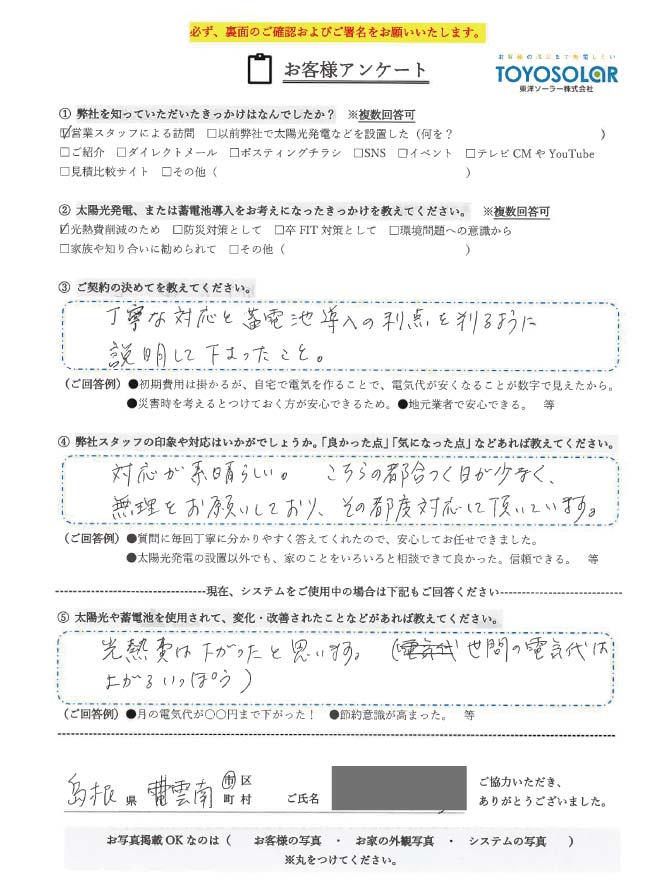 必ず、裏面のご確認およびご署名をお願いいたします。
お客様アンケート
TOYOSOLAR
東洋ソーラー株式会社
① 弊社を知っていただいたきっかけはなんでしたか？ ※複数回答可
☑営業スタッフによる訪問 □以前弊社で太陽光発電などを設置した（何を？ ）
□ご紹介 □ダイレクトメール □ポスティングチラシ □SNS □イベント □テレビ CM や YouTube
□見積比較サイト □その他（ ）
② 太陽光発電、または蓄電池導入をお考えになったきっかけを教えてください。 ※複数回答可
☑光熱費削減のため □防災対策として □卒 FIT 対策として □環境問題への意識から
□家族や知り合いに勧められて □その他（ ）
③ ご契約の決めてを教えてください。
丁寧な対応と蓄電池導入の利点を判るように
説明して下さったこと。
（ご回答例）●初期費用は掛かるが、自宅で電気を作ることで、電気代が安くなることが数字で見えたから。
●災害時を考えるとつけておく方が安心できるため。●地元業者で安心できる。 等
④ 弊社スタッフの印象や対応はいかがでしょうか。「良かった点」「気になった点」などあれば教えてください。
対応が素晴らしい。 こちらの都合つく日が少なく、
無理をお願いしており、その都度対応して頂いています。
（ご回答例）●質問に毎回丁寧に分かりやすく答えてくれたので、安心してお任せできました。
●太陽光発電の設置以外でも、家のことをいろいろと相談できて良かった。信頼できる。 等
現在、システムをご使用中の場合は下記もご回答ください
⑤ 太陽光や蓄電池を使用されて、変化・改善されたことなどがあれば教えてください。
光熱費は下がったと思います。（電気代 世間の電気代は
上がるいっぽう）
（ご回答例）●月の電気代が〇〇円まで下がった！ ●節約意識が高まった。 等
島根 県 雲南 市 区 町 村 ご氏名
ご協力いただき、
ありがとうございました。
お写真掲載 OK なのは（ お客様の写真 ・ お家の外観写真 ・ システムの写真 ）
※丸をつけてください。